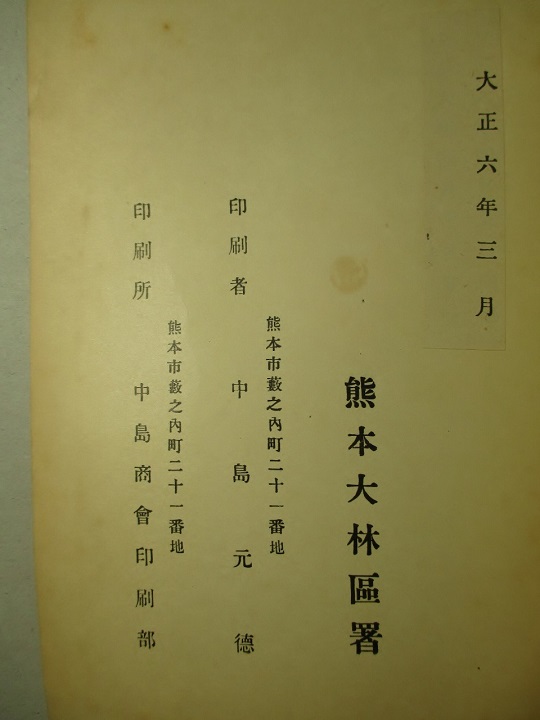 大正六年三月
熊本大林區署
熊本市藪之內町二十一番地
印刷者 中島元德
熊本市藪之內町二十一番地
印刷所 中島商會印刷部